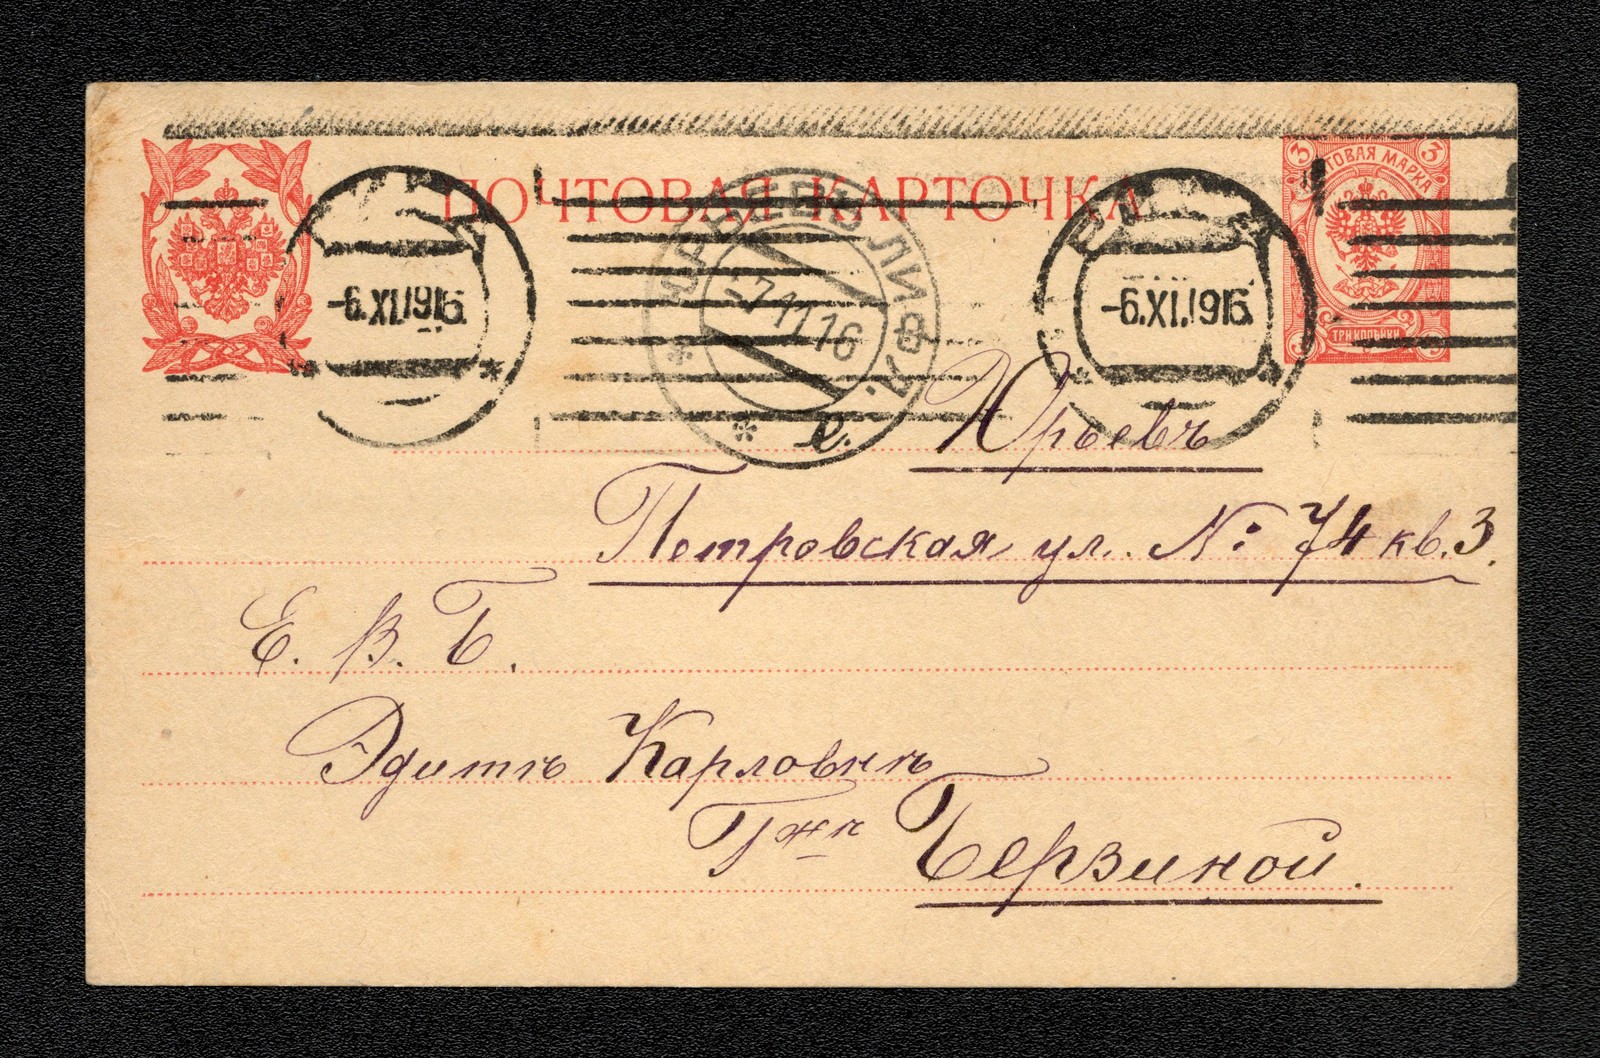 ПОЧТОВАЯ КАРТОЧКА
3 ТОВАЯ МАРКА 3
ТРИ КОПѢЙКИ
-6.XI.1916.
ЮРЬЕВЪ ЛИФЛ.
-7 11 16
е.
-6.XI.1916.
Юрьевъ
Петровская ул. №: 74 кв. 3.
Е. В. Б.
Эдитѣ Карловнѣ
Гжѣ Берзиной.